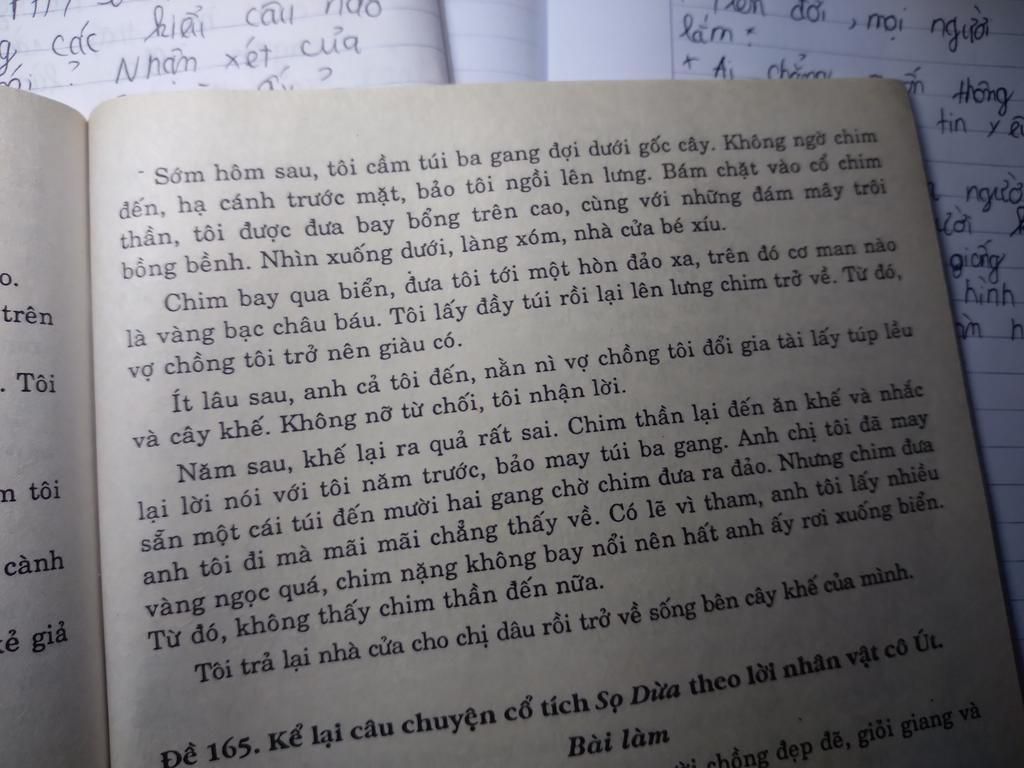 g các kiểi câu nào
Nhận xét của
đời, mọi người
lắm:
+ Ai chẳng
thông
tin yê
giống
hình
o.
trên
. Tôi
m tôi
cành
kẻ giả
Sớm hôm sau, tôi cầm túi ba gang đợi dưới gốc cây. Không ngờ chim
đến, hạ cánh trước mặt, bảo tôi ngồi lên lưng. Bám chặt vào cổ chim
thần, tôi được đưa bay bổng trên cao, cùng với những đám mây trôi
bồng bềnh. Nhìn xuống dưới, làng xóm, nhà cửa bé xíu.
Chim bay qua biển, đưa tôi tới một hòn đảo xa, trên đó cơ man nào
là vàng bạc châu báu. Tôi lấy đầy túi rồi lại lên lưng chim trở về. Từ đó,
vợ chồng tôi trở nên giàu có.
Ít lâu sau, anh cả tôi đến, nằn nì vợ chồng tôi đổi gia tài lấy túp lều
và cây khế. Không nỡ từ chối, tôi nhận lời.
Năm sau, khế lại ra quả rất sai. Chim thần lại đến ăn khế và nhắc
lại lời nói với tôi năm trước, bảo may túi ba gang. Anh chị tôi đã may
sẵn một cái túi đến mười hai gang chờ chim đưa ra đảo. Nhưng chim đưa
anh tôi đi mà mãi mãi chẳng thấy về. Có lẽ vì tham, anh tôi lấy nhiều
vàng ngọc quá, chim nặng không bay nổi nên hất anh ấy rơi xuống biển.
Từ đó, không thấy chim thần đến nữa.
Tôi trả lại nhà cửa cho chị dâu rồi trở về sống bên cây khế của mình.
Đề 165. Kể lại câu chuyện cổ tích Sọ Dừa theo lời nhân vật cô Út.
Bài làm
chồng đẹp đẽ, giỏi giang và